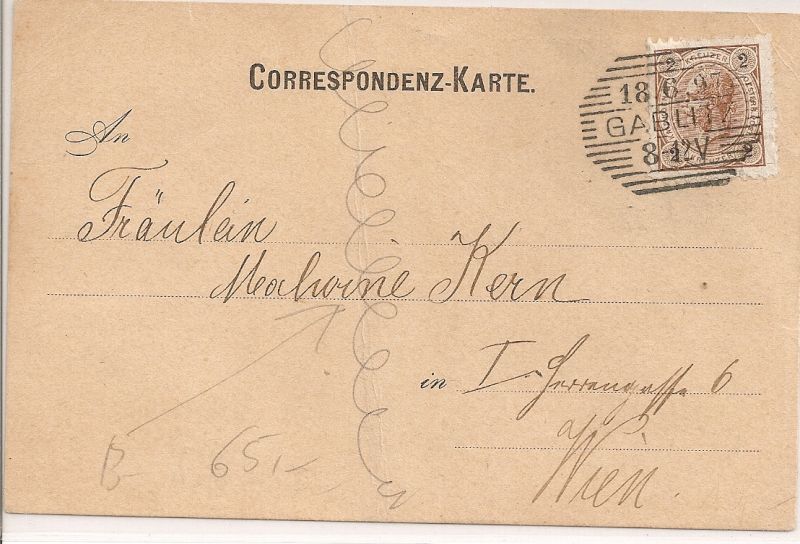 CORRESPONDENZ-KARTE.
2 KREUZER 2
18 6 97
GABLITZ
8-12V
2 2
An
Fräulein
Malwine Kern
in I. Herrengasse 6
Wien.
B 65,-